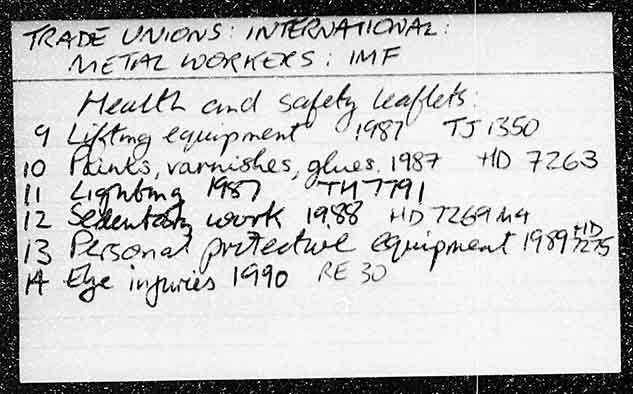 TRADE UNIONS: INTERNATIONAL:
METAL WORKERS: IMF
Health and safety leaflets:
9 Lifting equipment 1987 TJ 1350
10 Paints, varnishes, glues. 1987 HD 7263
11 Lighting 1987 TH 7791
12 Sedentary work 1988 HD 7269 M4
13 Personal protective equipment 1989 HD 7275
14 Eye injuries 1990 RE 30